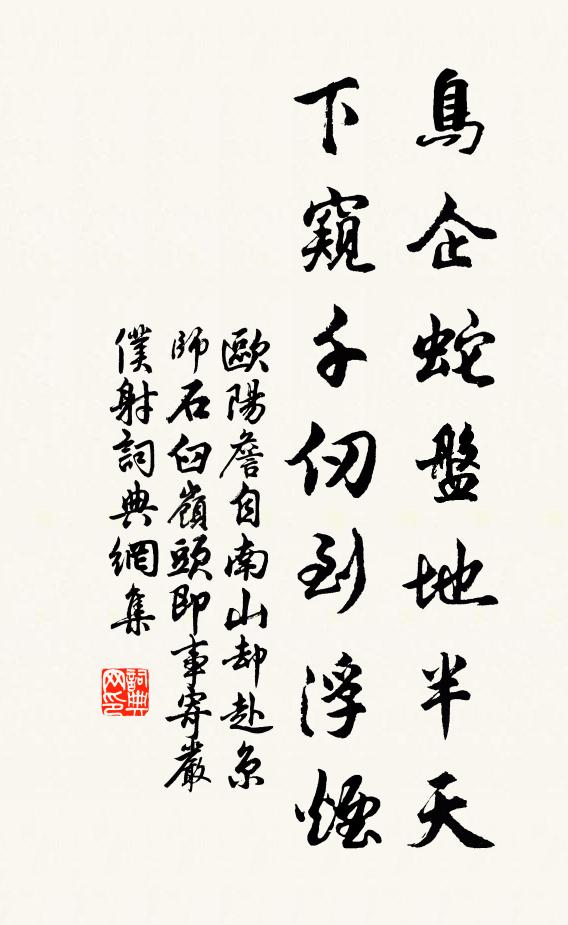 鳥企蛇盤地半天
下窺千仞到浮煙
歐陽詹自南山却赴京
師石臼嶺頭即事寄嚴
僕射詞典網集
詞典
网印